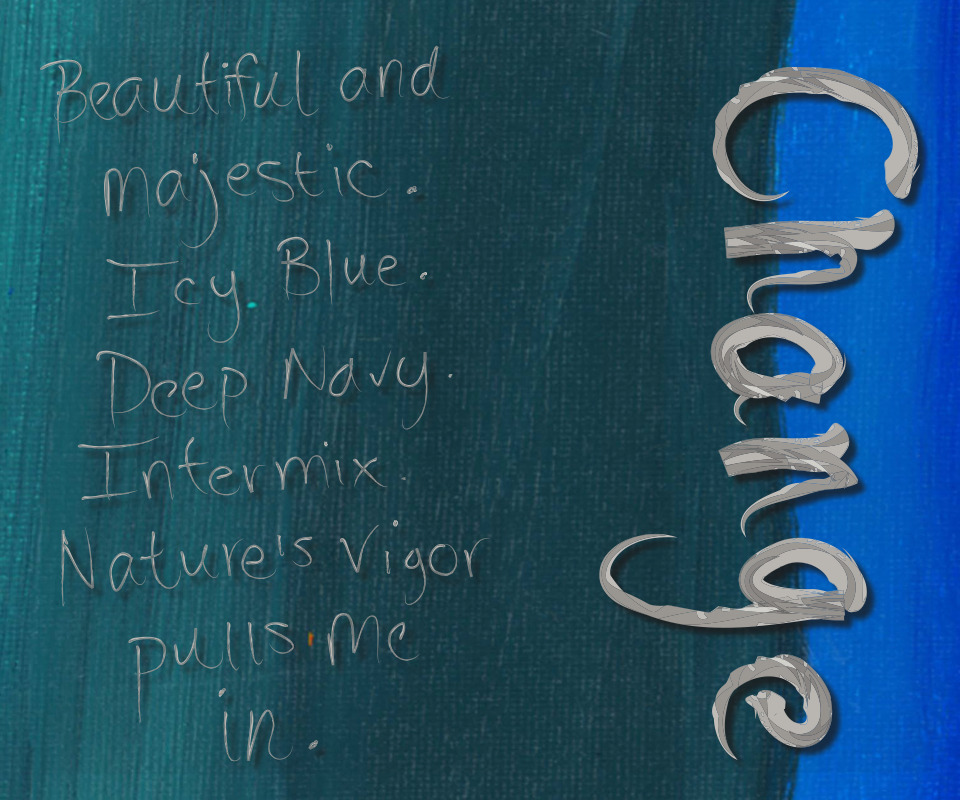 Beautiful and
majestic.
Icy Blue.
Deep Navy.
Intermix.
Nature's Vigor
pulls me
in.
Change